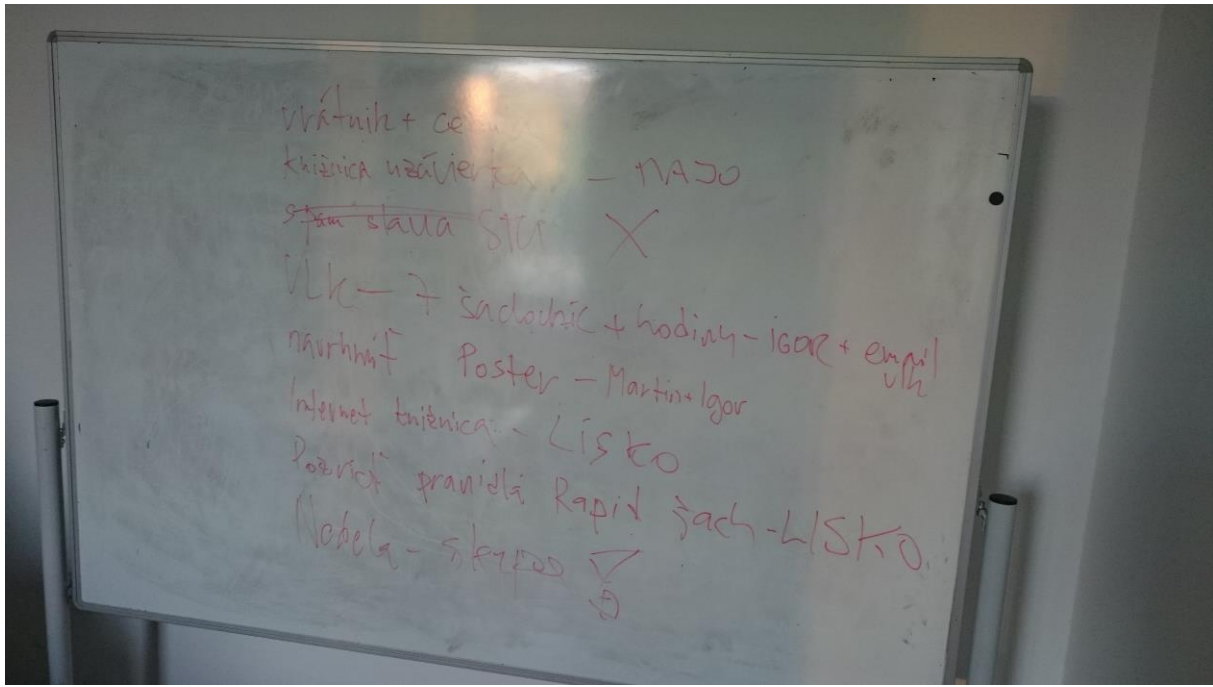 vrátnik +
knižnica uzávierka - MAJO
spam slava STU X
Vlk - 7 šachovníc + hodiny - IGOR + email vlk
navrhnúť Poster - Martin + Igor
Internet knižnica - LISKO
Pozrieť pravidlá Rapid šach - LISKO
Nedela -